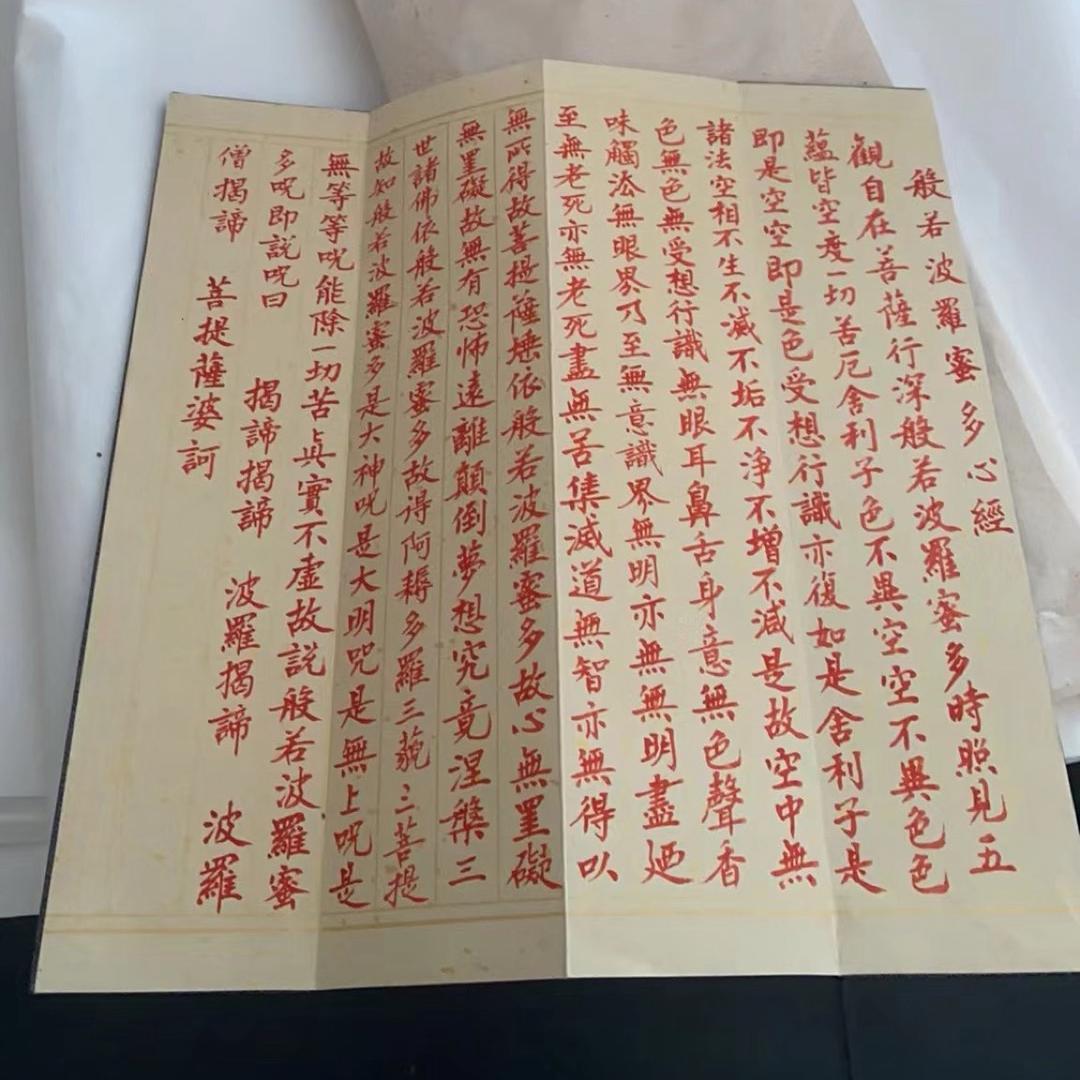 般若波羅蜜多心經
觀自在菩薩行深般若波羅蜜多時照見五
蘊皆空度一切苦厄舍利子色不異空空不異色色
即是空空即是色受想行識亦復如是舍利子是
諸法空相不生不滅不垢不净不增不減是故空中無
色無色無受想行識無眼耳鼻舌身意無色聲香
味觸法無眼界乃至無意識界無明亦無無明盡廼
至無老死亦無老死盡無苦集滅道無智亦無得以
無所得故菩提薩埵依般若波羅蜜多故心無罣礙
無罣礙故無有恐怖遠離顛倒夢想究竟涅槃三
世諸佛依般若波羅蜜多故得阿耨多羅三藐三菩提
故知般若波羅蜜多是大神咒是大明咒是無上咒是
無等等咒能除一切苦真實不虛故説般若波羅蜜
多咒即説咒曰 揭諦揭諦 波羅揭諦 波羅
僧揭諦 菩提薩婆訶